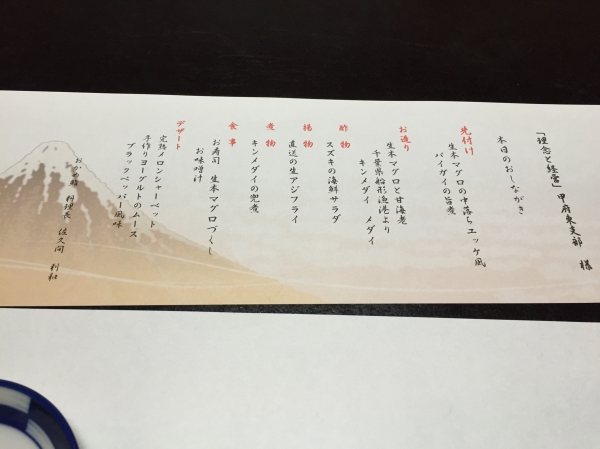 「理念と経営」甲府東支部 様
本日のおしながき
先付け
生本マグロの中落ちユッケ風
バイガイの旨煮
お造り
生本マグロと甘海老
千葉県船形漁港より
キンメダイ メダイ
酢物
スズキの海鮮サラダ
揚物
直送の生アジフライ
煮物
キンメダイの兜煮
食事
お寿司 生本マグロづくし
お味噌汁
デザート
完熟メロンシャーベット
手作りヨーグルトのムース
ブラックペッパー風味
おかめ鮨 料理長 佐久間 利和